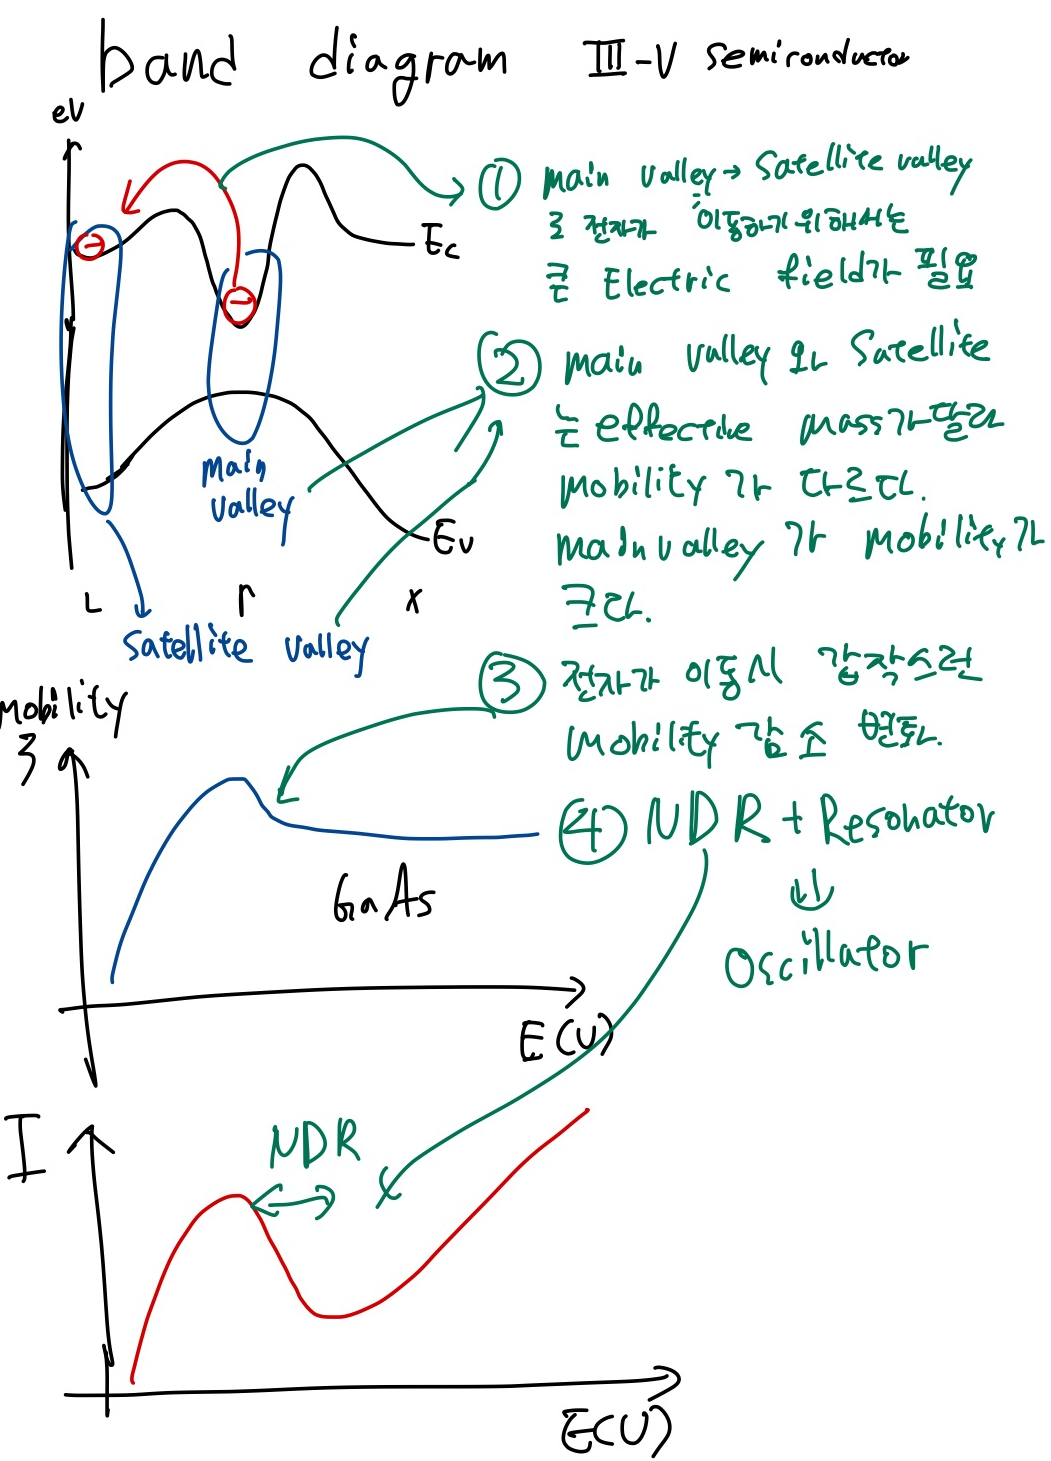 band diagram III-V semiconductor
eV
① main valley → Satellite valley
로 전자가 이동하기 위해서는
큰 Electric field가 필요
Ec
② main valley 와 Satellite
는 effective mass가 달라
mobility 가 다르다.
main valley 가 mobility가
크다.
main
valley
Ev
L Γ X
Satellite valley
③ 전자가 이동시 갑작스런
mobility 감소 변화.
Mobility
④ NDR + Resonator
⇓
Oscillator
GaAs
E(V)
I
NDR
E(V)